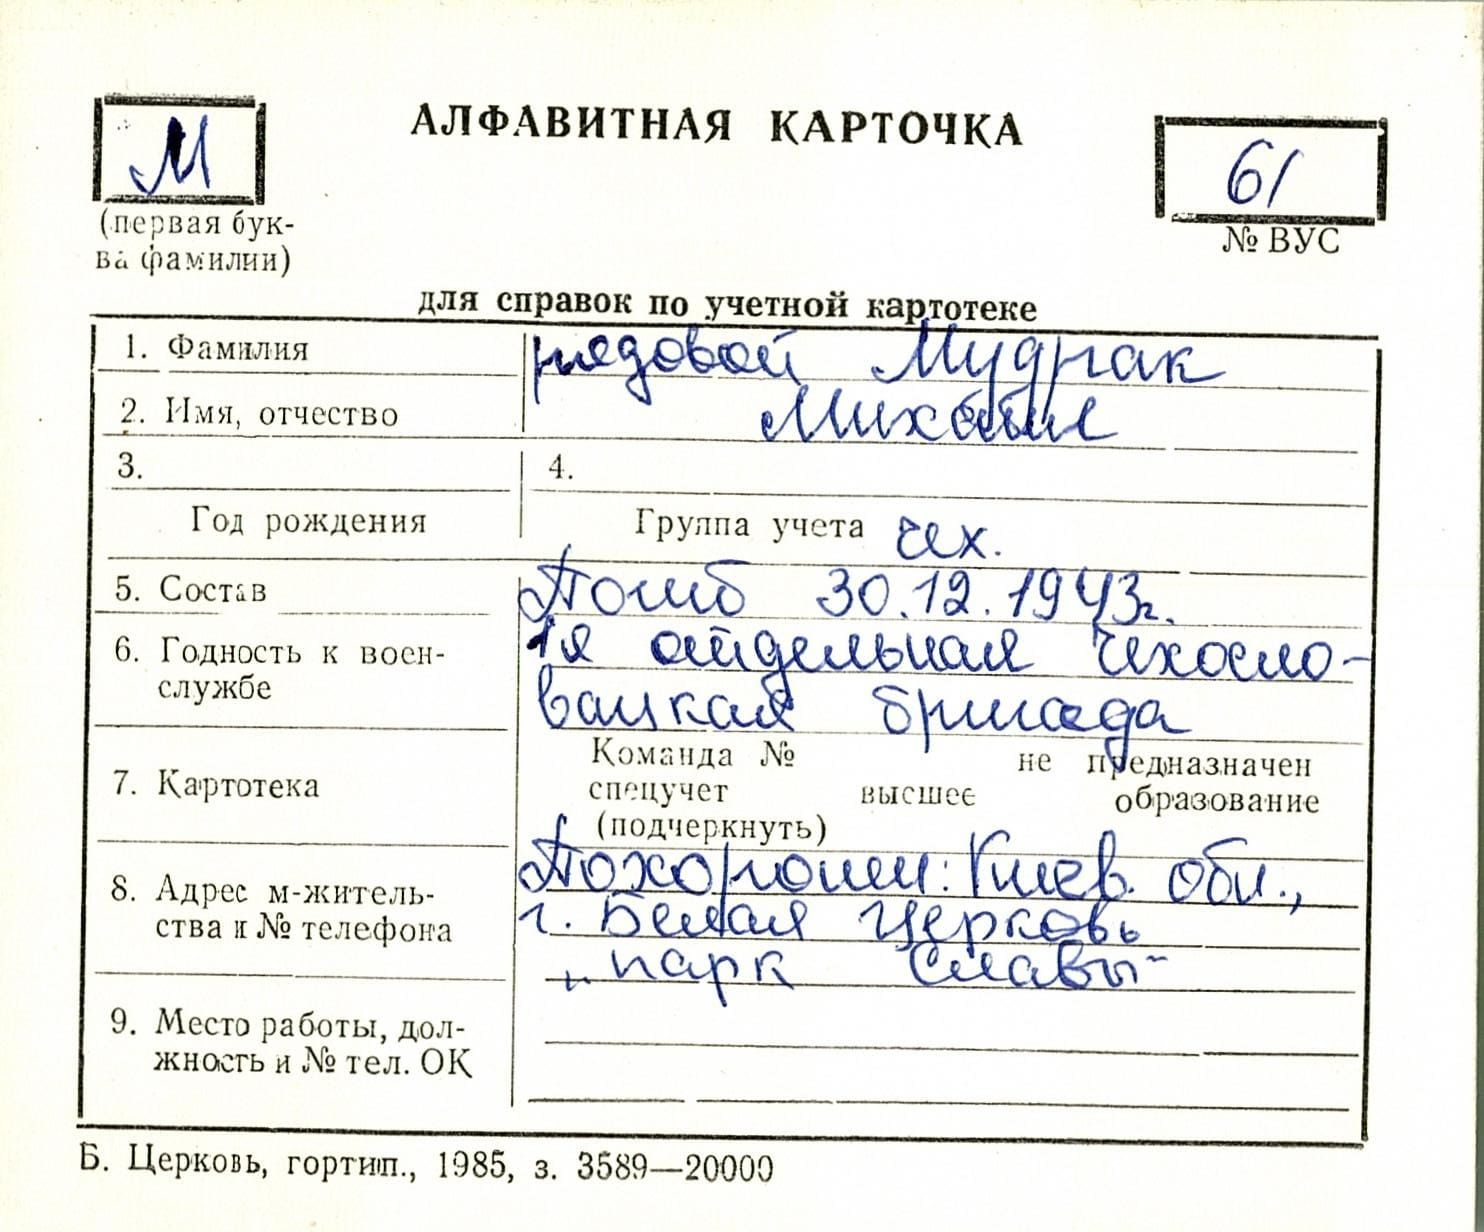 М
АЛФАВИТНАЯ КАРТОЧКА
61
(первая бук-
ва фамилии)
№ ВУС
для справок по учетной картотеке
1. Фамилия
рядовой Мудрак
2. Имя, отчество
Михаил
3.
4.
Год рождения
Группа учета чех.
5. Состав
Погиб 30.12.1943г.
6. Годность к воен-
службе
1я отдельная Чехосло-
вацкая бригада
7. Картотека
Команда № не предназначен
спецучет высшее образование
(подчеркнуть)
8. Адрес м-житель-
ства и № телефона
Похоронен: Киев. обл.,
г. Белая Церковь
„парк Славы"
9. Место работы, дол-
жность и № тел. ОК
Б. Церковь, гортип., 1985, з. 3589—20000